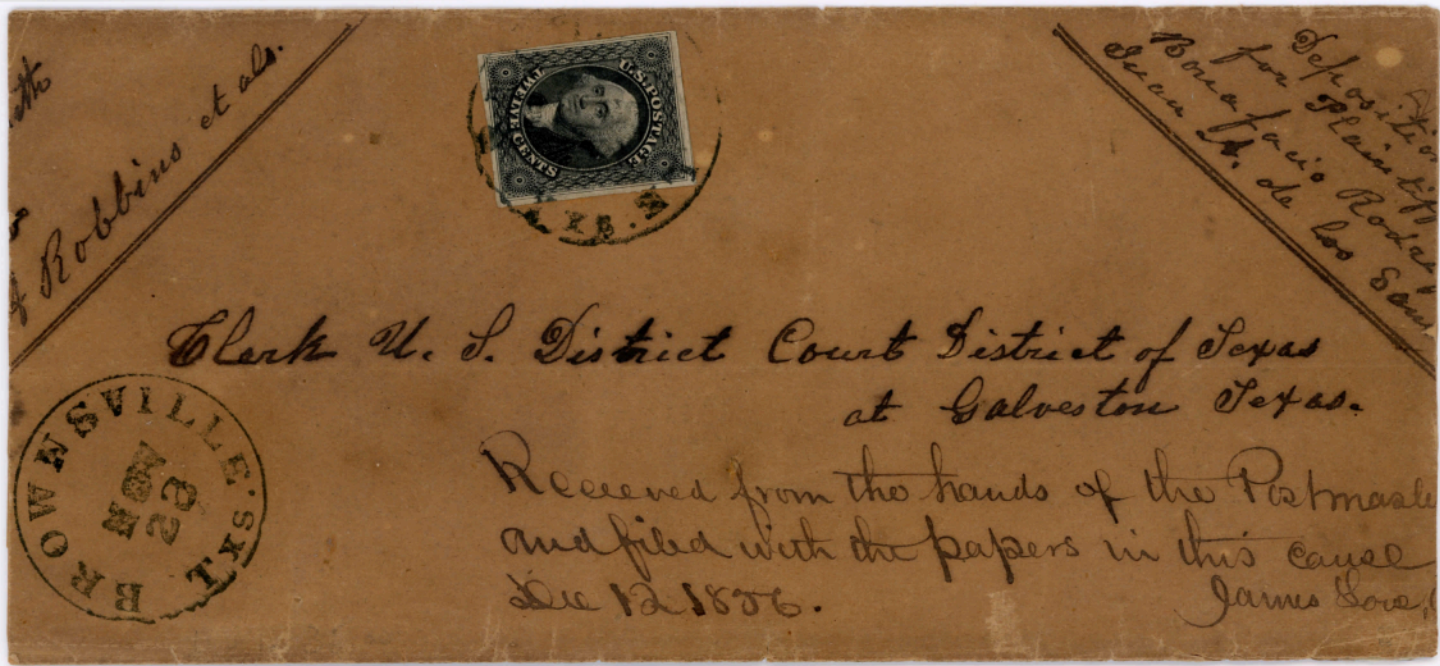 & Robbins et als.
U.S. POSTAGE
TWELVE CENTS
Deposition
for Plaintiff
Bonafacio
Juan de los
Clerk U. S. District Court District of Texas
at Galveston Texas.
BROWNSVILLE. TXS.
NOV
23
Received from the hands of the
and filed with the papers in this cause
Dec 12 1856.
James Love,